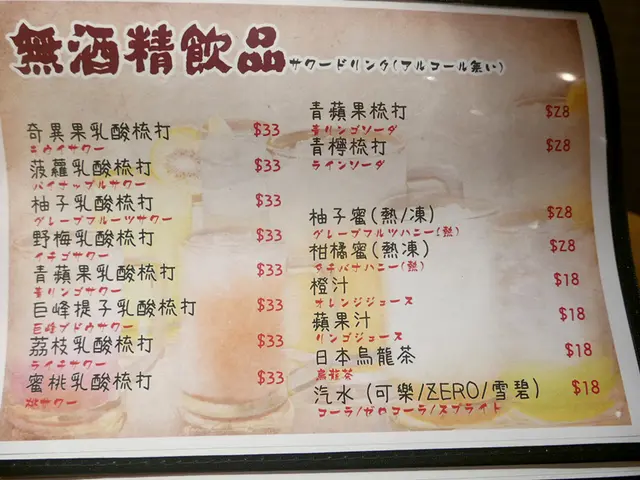 無酒精飲品 サワードリンク(アルコール無い)
奇異果乳酸梳打 $33
キウイサワー
菠蘿乳酸梳打 $33
パイナップルサワー
柚子乳酸梳打 $33
グレープフルーツサワー
野梅乳酸梳打 $33
イチゴサワー
青蘋果乳酸梳打 $33
青リンゴサワー
巨峰提子乳酸梳打 $33
巨峰ブドウサワー
荔枝乳酸梳打 $33
ライチサワー
蜜桃乳酸梳打 $33
桃サワー
青蘋果梳打 $28
青リンゴソーダ
青檸梳打 $28
ラインソーダ
柚子蜜(熱/凍) $28
グレープフルツハニー(熱)
柑橘蜜(熱凍) $28
タチバナハニー(熱)
橙汁 $18
オレンジジュース
蘋果汁 $18
リンゴジュース
日本烏龍茶 $18
烏龍茶
汽水 (可樂/ZERO/雪碧) $18
コーラ/ゼロコーラ/スプライト